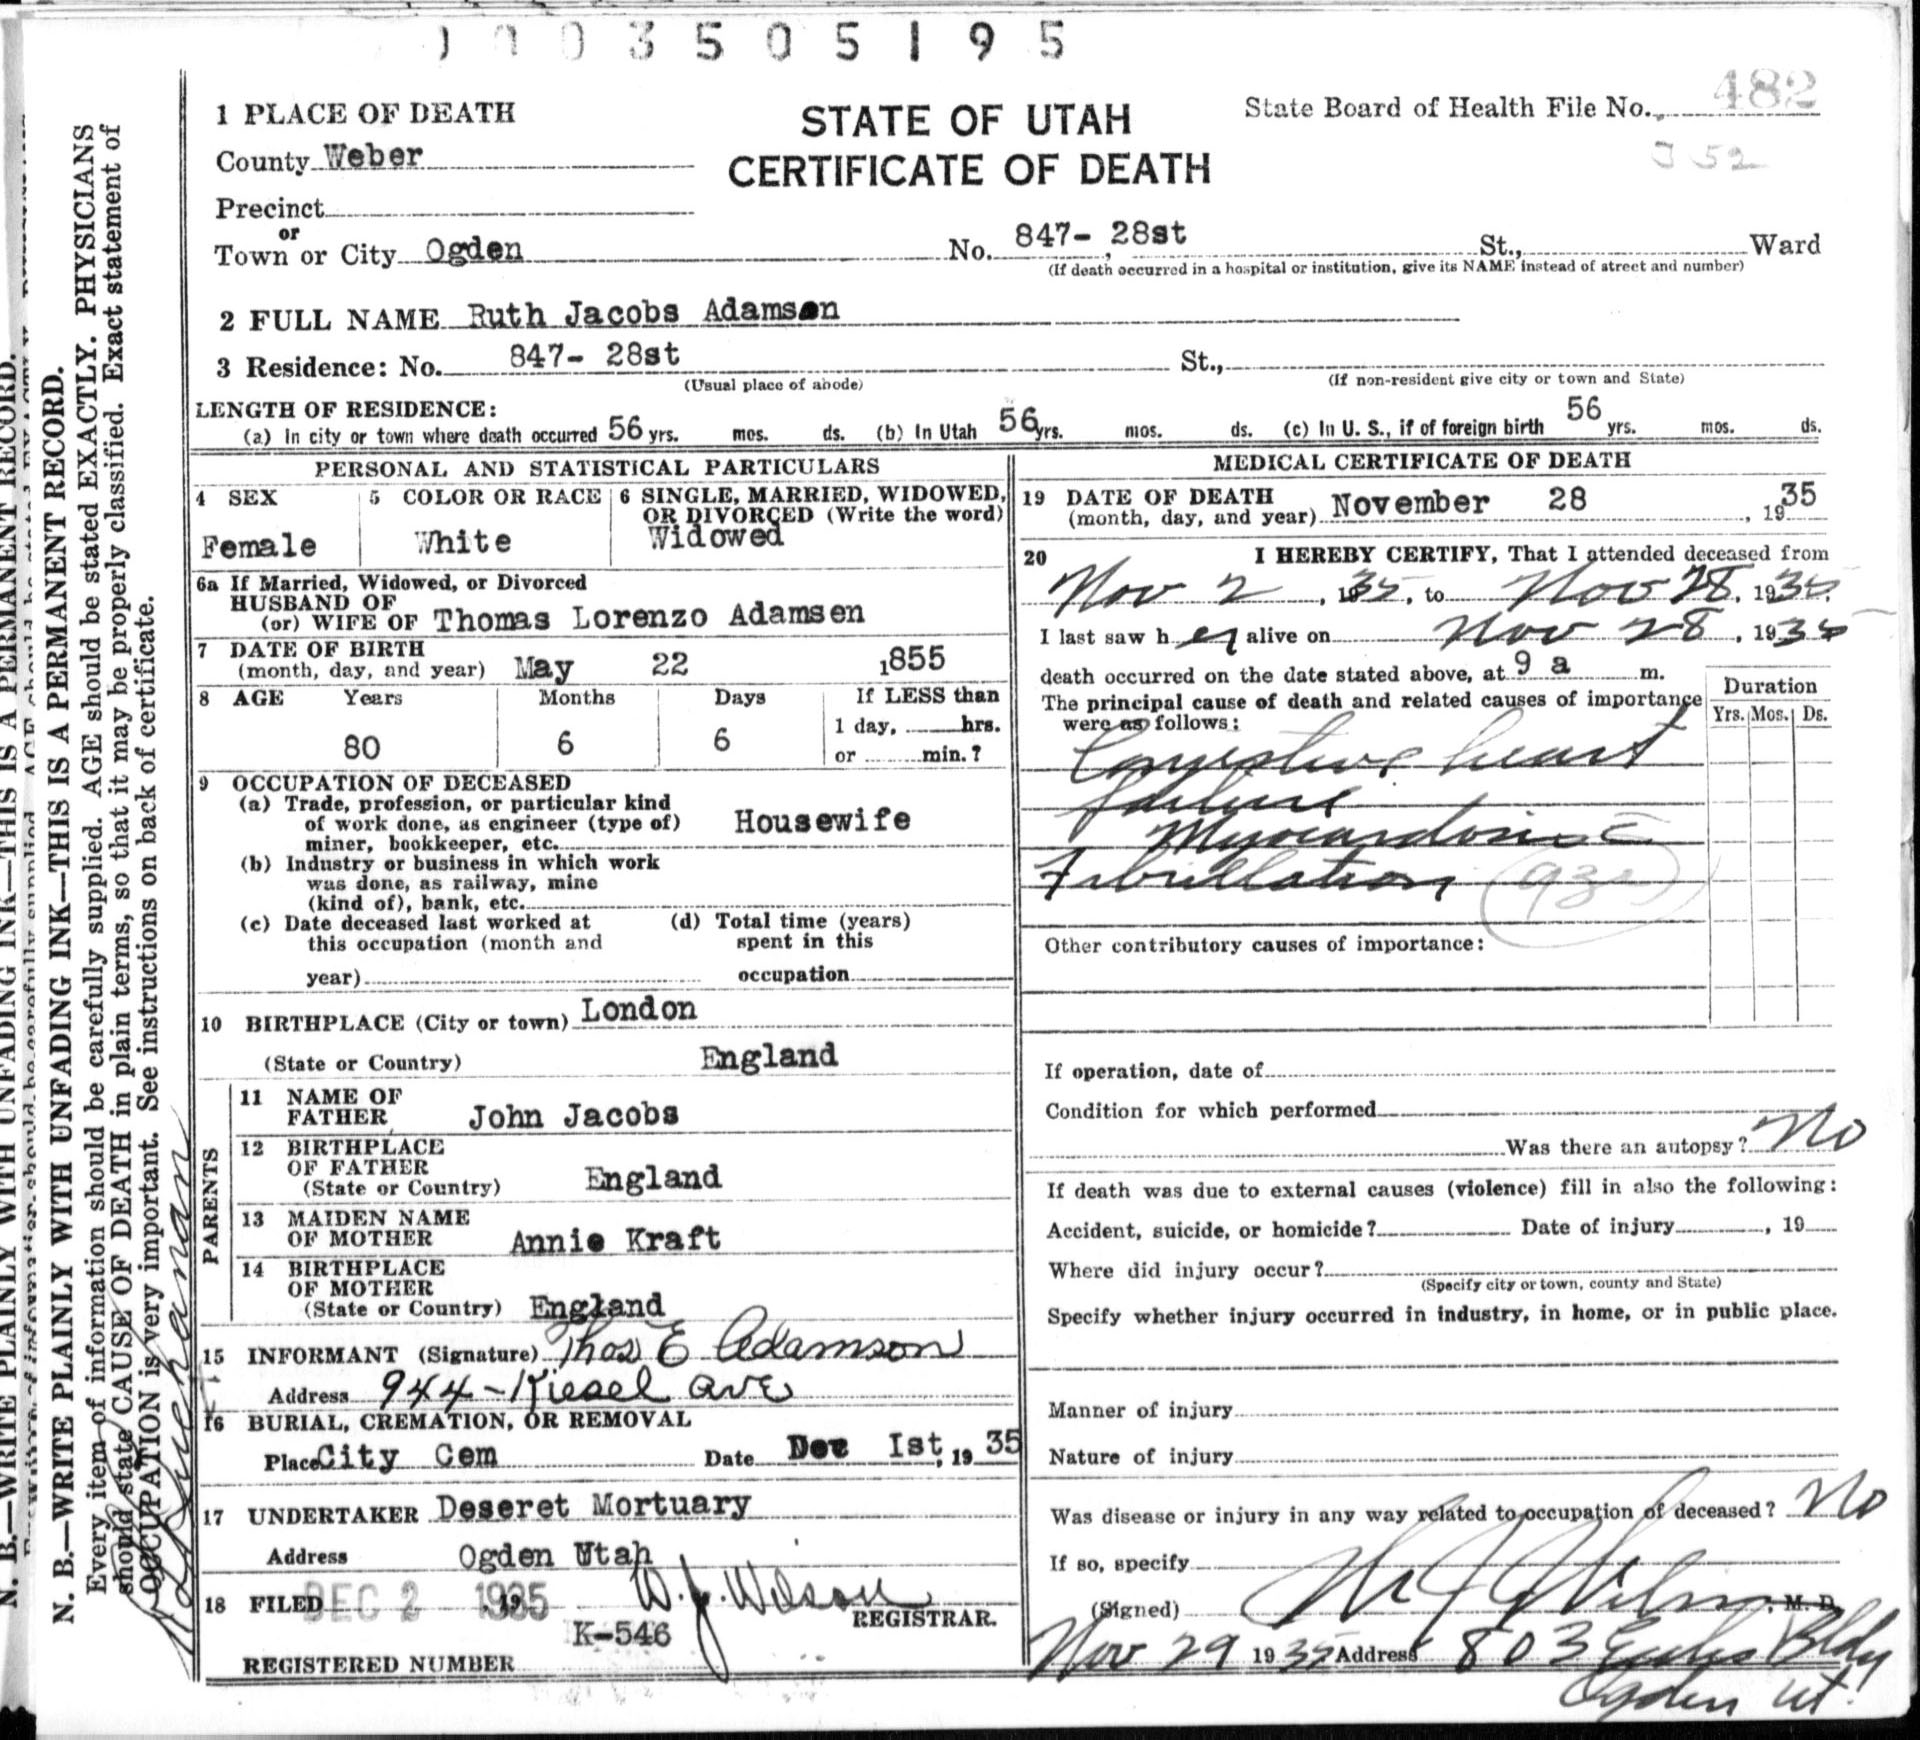 1003505195
482
J 52
State Board of Health File No.
STATE OF UTAH
CERTIFICATE OF DEATH
1 PLACE OF DEATH
County Weber
Precinct
or
Town or City Ogden No. 847- 28st St., Ward
(If death occurred in a hospital or institution, give its NAME instead of street and number)
2 FULL NAME Ruth Jacobs Adamson
3 Residence: No. 847- 28st St.,
(Usual place of abode) (If non-resident give city or town and State)
LENGTH OF RESIDENCE:
(a) In city or town where death occurred 56 yrs. mos. ds. (b) In Utah 56 yrs. mos. ds. (c) In U. S., if of foreign birth 56 yrs. mos. ds.
PERSONAL AND STATISTICAL PARTICULARS
4 SEX
Female
5 COLOR OR RACE
White
6 SINGLE, MARRIED, WIDOWED,
OR DIVORCED (Write the word)
Widowed
6a If Married, Widowed, or Divorced
HUSBAND OF
(or) WIFE OF Thomas Lorenzo Adamsen
7 DATE OF BIRTH
(month, day, and year) May 22 1855
8 AGE Years Months Days If LESS than
1 day, hrs.
80 6 6 or min.?
9 OCCUPATION OF DECEASED
(a) Trade, profession, or particular kind
of work done, as engineer (type of) Housewife
miner, bookkeeper, etc.
(b) Industry or business in which work
was done, as railway, mine
(kind of), bank, etc.
(c) Date deceased last worked at (d) Total time (years)
this occupation (month and spent in this
year) occupation
10 BIRTHPLACE (City or town) London
(State or Country) England
PARENTS
11 NAME OF
FATHER John Jacobs
12 BIRTHPLACE
OF FATHER
(State or Country) England
13 MAIDEN NAME
OF MOTHER Annie Kraft
14 BIRTHPLACE
OF MOTHER
(State or Country) England
15 INFORMANT (Signature) Thos E Adamson
Address 944-Kiesel ave
16 BURIAL, CREMATION, OR REMOVAL
Place City Cem Date Dec 1st, 19 35
17 UNDERTAKER Deseret Mortuary
Address Ogden Utah
18 FILED DEC 2 1935 W. J. Wilson
REGISTRAR.
K-546
REGISTERED NUMBER
MEDICAL CERTIFICATE OF DEATH
19 DATE OF DEATH
(month, day, and year) November 28, 1935
20 I HEREBY CERTIFY, That I attended deceased from
Nov 2, 1935, to Nov 28, 1935,
I last saw her alive on Nov 28, 1935
death occurred on the date stated above, at 9 a m.
The principal cause of death and related causes of importance
were as follows:
Duration
Yrs. Mos. Ds.
Congestive heart
failure
Myocardosis c
Fibrillation
Other contributory causes of importance:
If operation, date of
Condition for which performed
Was there an autopsy? No
If death was due to external causes (violence) fill in also the following:
Accident, suicide, or homicide? Date of injury, 19
Where did injury occur?
(Specify city or town, county and State)
Specify whether injury occurred in industry, in home, or in public place.
Manner of injury
Nature of injury
Was disease or injury in any way related to occupation of deceased? No
If so, specify
(Signed) , M. D.
Nov 29 1935 Address 803 Eccles Bldg
Ogden Ut.
N. B.—WRITE PLAINLY WITH UNFADING INK—THIS IS A PERMANENT RECORD.
N. B.—WRITE PLAINLY WITH UNFADING INK—THIS IS A PERMANENT RECORD.
Every item of information should be carefully supplied. AGE should be stated EXACTLY. PHYSICIANS
should state CAUSE OF DEATH in plain terms, so that it may be properly classified. Exact statement of
OCCUPATION is very important. See instructions on back of certificate.